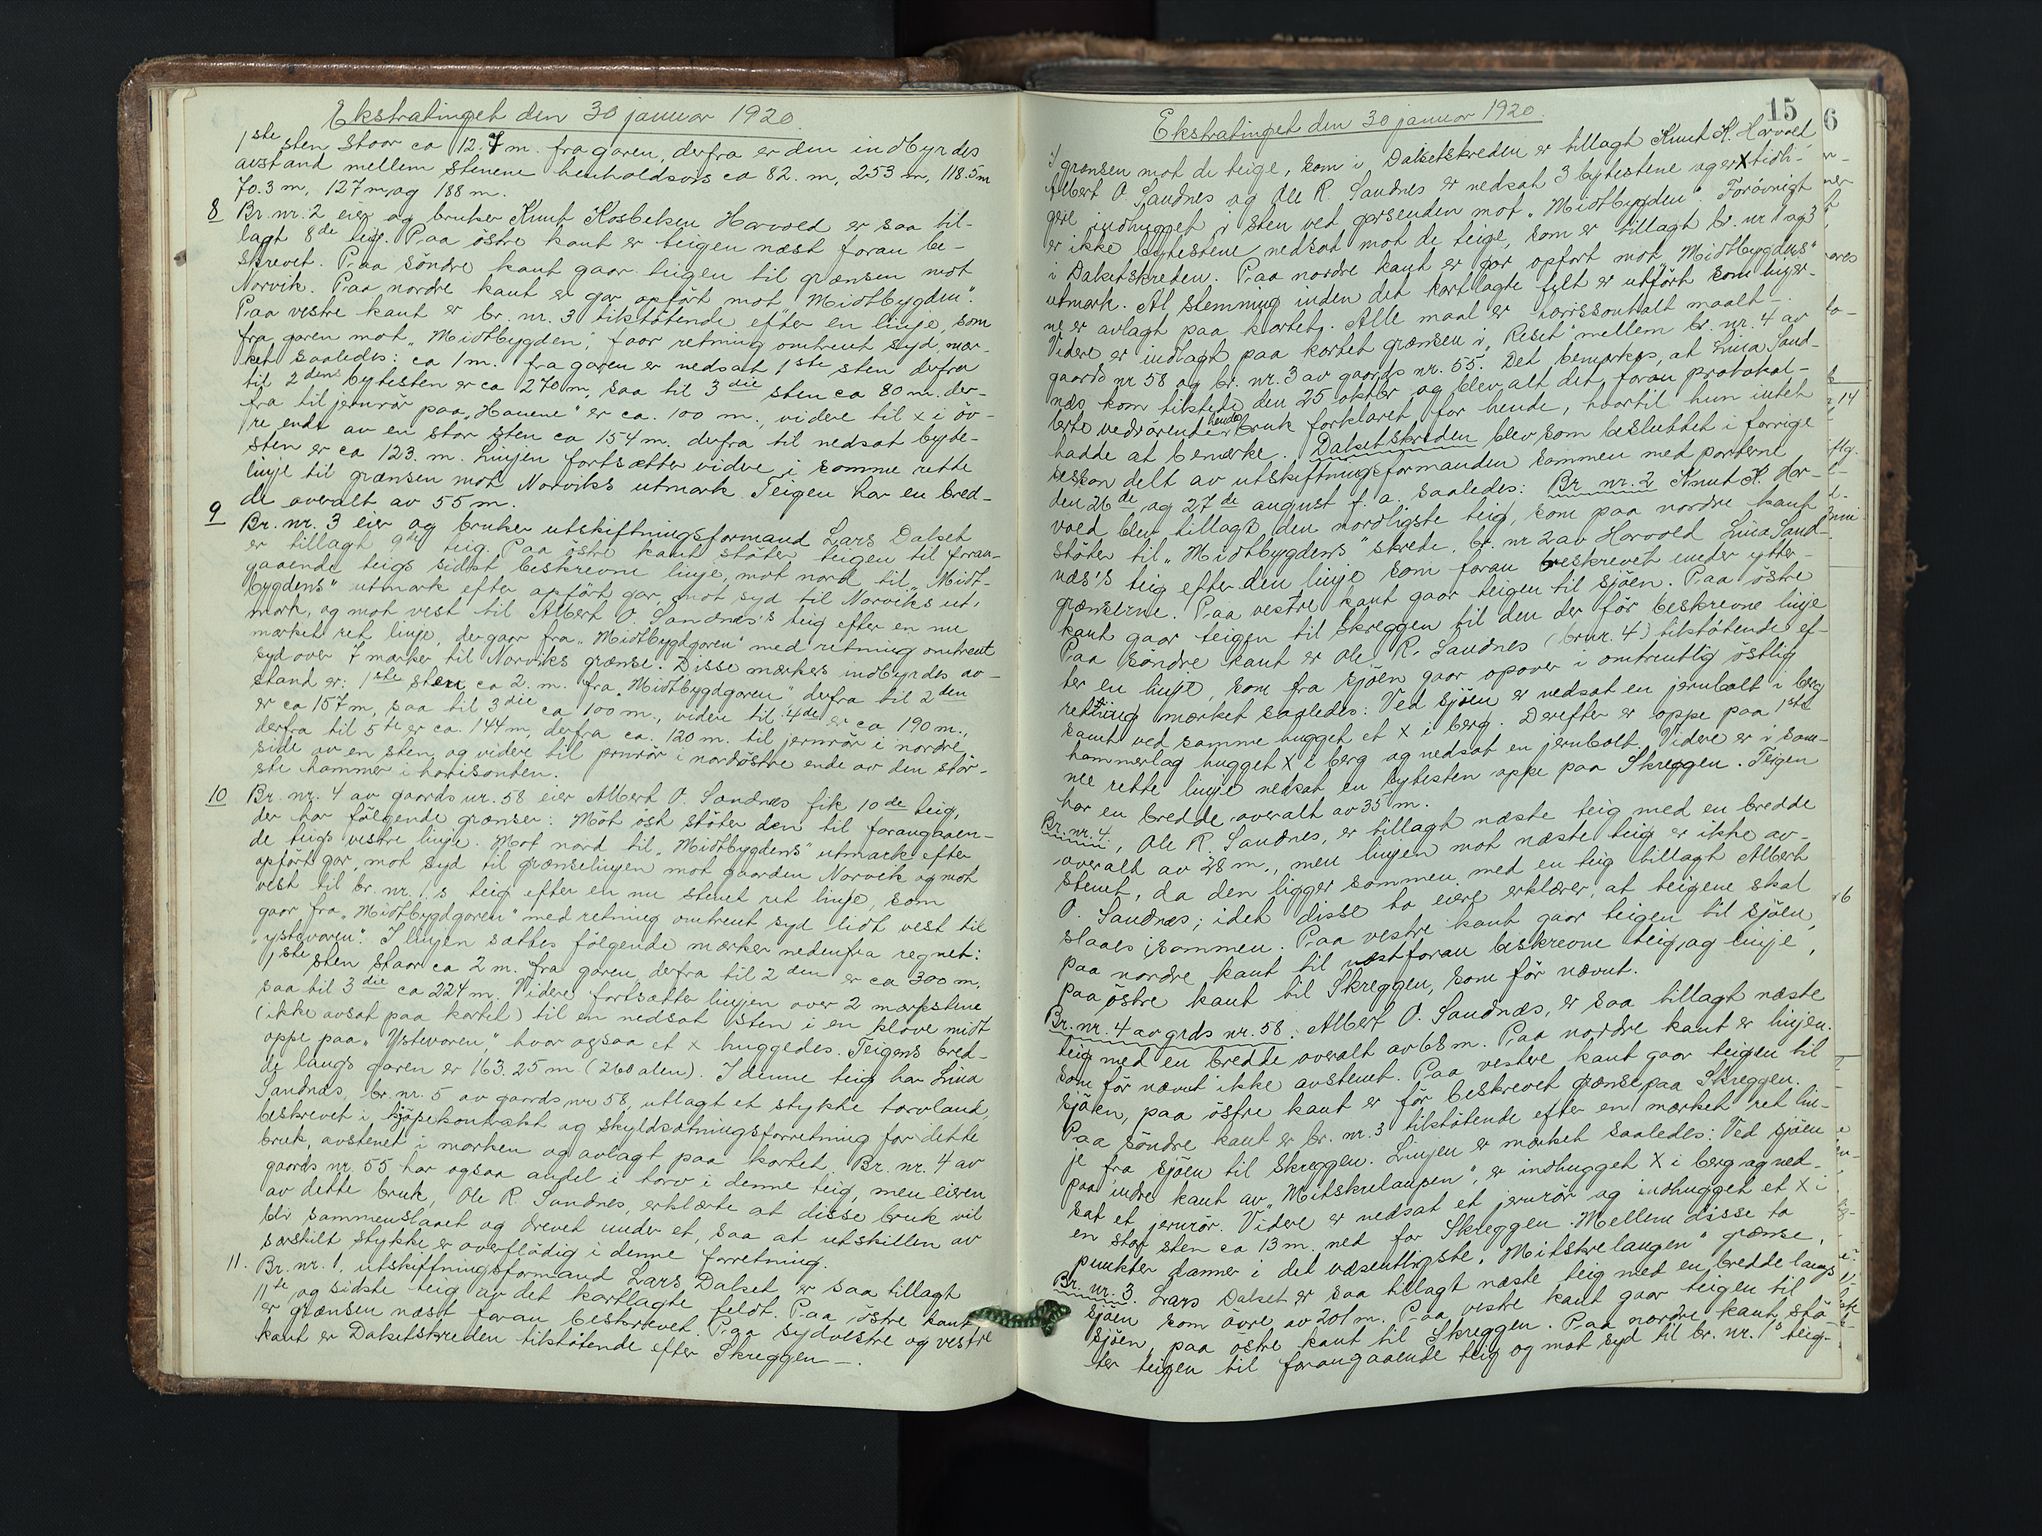 Ekstratinget den 30 januar 1920.
1ste sten staar ca 12.7 m. fra garen, derfra er den indbyrdes
avstand mellem stenene henholdsvis ca 82. m, 253 m, 118.5 m
70.3 m, 127 m, og 188 m.
8 Br. nr. 2 eier og bruker Knut Harvold er saa til-
lagt 8de teig. Paa østre kant er teigen næst foran be-
skrevet. Paa søndre kant gaar teigen til grænsen mot
Norvik. Paa nordre kant er gar opført mot "Midtbygden".
Paa vestre kant er br. nr. 3 tilstøtende efter en linje, som
fra garen mot "Midtbygden", faar retning omtrent syd, mær-
ket saaledes: ca 1 m. fra garen er nedsat 1ste sten derfra
til 2den bytesten er ca 270 m, saa til 3die sten ca 80 m. der-
fra til jernrør paa "Hauene" er ca. 100 m., videre til x i øv-
re ende av en stor sten ca 154 m. derfra til nedsat byde-
sten er ca 123. m. Linjen fortsætter videre i samme rette
linje til grænsen mot Norviks utmark. Teigen har en bred-
de overalt av 55 m.
9 Br. nr. 3 eier og bruker utskiftningsformand Lars Dalset
er tillagt 9de teig. Paa østre kant støter teigen til foran-
gaaende teigs sidst beskrevne linje, mot nord til "Midt-
bygdens" utmark efter opført gar, mot syd til Norviks ut-
mark, og mot vest til Albert O. Sandnæs's teig efter en nu
mærket ret linje, der gaar fra "Midtbygdgaren" med retning omtrent
syd over 7 mærker til Norviks grænse. Disse mærkers indbyrdes av-
stand er: 1ste sten ca 2. m. fra "Midtbygdgaren" derfra til 2den
er ca 157 m, saa til 3die ca 100 m., videre til 4de er ca 190 m.,
derfra til 5te er ca. 144 m, derfra ca. 120 m. til jernrør i nordre
side av en sten, og videre til jernrør i nordøstre ende av den stør-
ste hammer i horisonten.
10 Br. nr. 4 av gaards nr. 58 eier Albert O. Sandnæs fik 10de teig,
der har følgende grænser: Mot øst støter den til forangaaen-
de teigs vestre linje. Mot nord til "Midtbygdens" utmark efter
opført gar, mot syd til grænselinjen mot gaarden Norvik og mot
vest til br. nr. 1's teig efter en nu stenet ret linje, som
gaar fra "Midtbygdgaren" med retning omtrent syd lidt vest til
"ystevoren". I linjen sættes følgende mærker nedenfra regnet:
1ste sten staar ca 2 m. fra garen, derfra til 2den er ca 300 m,
saa til 3die ca 224 m. Videre fortsætter linjen over 2 mærkstene
(ikke avsat paa kartet) til en nedsat sten i en kløve midt
oppe paa "Ystevoren", hvor ogsaa et x huggedes. Teigens bred-
de langs garen er 163.25 m. (260 alen). I denne teig har Lina
Sandnæs, br. nr. 5 av gaards nr 58, utlagt et stykke torvland,
beskrevet i kjøpekontrakt og skyldsætningsforretning for dette
bruk, avstenet i marken og avlagt paa kartet. Br. nr. 4 av
gaards nr. 55 har ogsaa andel i torv i denne teig, men eieren
av dette bruk, Ole R. Sandnes, erklærte at disse bruk vil
bli sammenslaaet og drevet under et, saa at utskillen av
særskilt stykke er overflødig i denne forretning.
11. Br. nr. 1, utskiftningsformand Lars Dalset, er saa tillagt
11te og sidste teig av det kartlagte feldt. Paa østre kant
er grænsen næst foran beskrevet. Paa sydvestre og vestre
kant er Dalsetskreden tilstøtende efter Skreggen —.
15
Ekstratinget den 30 januar 1920.
I grænsen mot de teige, som i Dalsetskreden er tillagt Knut K. Harvold,
Albert O. Sandnes og Ole R. Sandnes er nedsat 3 bytestene og er x tidli-
gere indhugget i sten ved garsenden mot "Midtbygden". Forøvrigt
er ikke bytestene nedsat mot de teige, som er tillagt br. nr 1 og 3
i Dalsetskreden. Paa nordre kant er gar opført mot "Midtbygdens"
utmark. Al stemning inden det kartlagte felt er utført som linjer-
ne er avlagt paa kartet. Alle maal er horrisontalt maalt —.
Videre er indlagt paa kartet grænsen i "Reset" mellem br. nr. 4 av
gaards nr 58 og br. nr. 3 av gaards nr. 55. Det bemærkes, at Lina Sand-
næs kom tilstede den 25 oktbr og blev alt det foran protokol-
lerte vedrørende hendes bruk forklaret for hende, hvortil hun intet
hadde at bemærke. Dalsetskreden blev som besluttet i forrige
sesjon delt av utskiftningsformanden sammen med parterne
den 26de og 27de august f. a. saaledes: Br. nr. 2 Knut K. Har-
vold blev tillagt den nordligste teig, som paa nordre kant
støter til "Midtbygdens" skrede, br. nr 2 av Harvold Lina Sand-
næs's teig efter den linje som foran beskrevet under ytter-
grænserne. Paa vestre kant gaar teigen til sjøen. Paa østre
kant gaar teigen til Skreggen til den der før beskrevne linje
Paa søndre kant er Ole R. Sandnes (br. nr. 4) tilstøtende ef-
ter en linje, som fra sjøen gaar opover i omtrentlig østlig
retning mærket saaledes: Ved sjøen er nedsat en jernbolt i berg
samt ved samme hugget et x i berg. Derefter er oppe paa 1ste
hammerlag hugget x i berg og nedsat en jernbolt. Videre er i sam-
me rette linje nedsat en bytesten oppe paa Skreggen. Teigen
har en bredde overalt av 35 m.
Br. nr. 4, Ole R. Sandnes, er tillagt næste teig med en bredde
overalt av 28 m., men linjen mot næste teig er ikke av-
stenet, da den ligger sammen med en teig tillagt Albert
O. Sandnæs; idet disse to eiere erklærer, at teigene skal
slaaes sammen. Paa vestre kant gaar teigen til sjøen,
paa nordre kant til næst foran beskrevne teig, og linje,
paa østre kant til Skreggen, som før nævnt.
Br. nr. 4 av grds nr. 58: Albert O. Sandnæs, er saa tillagt næste
teig med en bredde overalt av 68 m. Paa nordre kant er linjen
som før nævnt ikke avstenet. Paa vestere kant gaar teigen til
sjøen, paa østre kant er før beskrevet grænse paa Skreggen.
Paa søndre kant er br. nr. 3 tilstøtende efter en mærket ret lin-
je fra sjøen til Skreggen. Linjen er mærket saaledes: Ved sjøen
paa indre kant av "Mitskrelaupen", er indhugget x i berg og ned-
sat et jernrør. Videre er nedsat et jernrør og indhugget et x i
en stor sten ca 13 m. ned for Skreggen. Mellem disse to
punkter danner i det væsentligste "Mitskrelaugen" grænse.
Br. nr. 3. Lars Dalset er saa tillagt næste teig med en bredde langs
sjøen som øvre av 201 m. Paa vestre kant gaar teigen til
sjøen, paa østre kant til Skreggen. Paa nordre kant stø-
ter teigen til forangaaende teig og mot syd til br. nr. 1's teig-